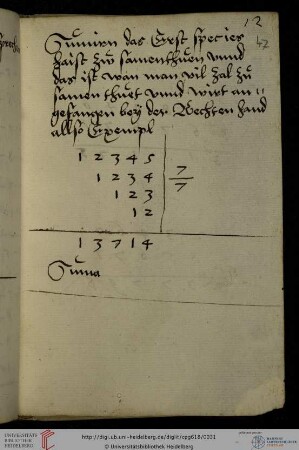 12
42
Sumirn das Erst species
haist zů samenthuen vnnd
das ist wan man vil zal zů
samen thuet vnnd wirt an=
gefangen bey der Rechten hand
allso Exempl
1 2 3 4 5
1 2 3 4
1 2 3
1 2
7
7
1 3 7 1 4
Suma
UNIVERSITÄTS-
BIBLIOTHEK
HEIDELBERG
http://digi.ub.uni-heidelberg.de/diglit/cpg618/0031
© Universitätsbibliothek Heidelberg